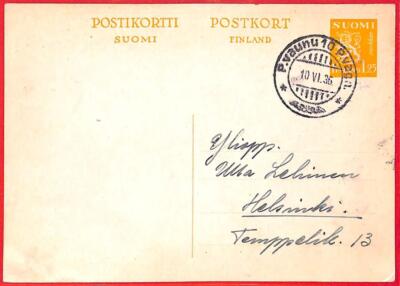 POSTIKORTTI
SUOMI
POSTKORT
FINLAND
SUOMI
1.25
P.vaunu 10 P.vagn.
10 VI. 36
Yliopp.
Ulla Lehinen
Helsinki.
Temppelik. 13